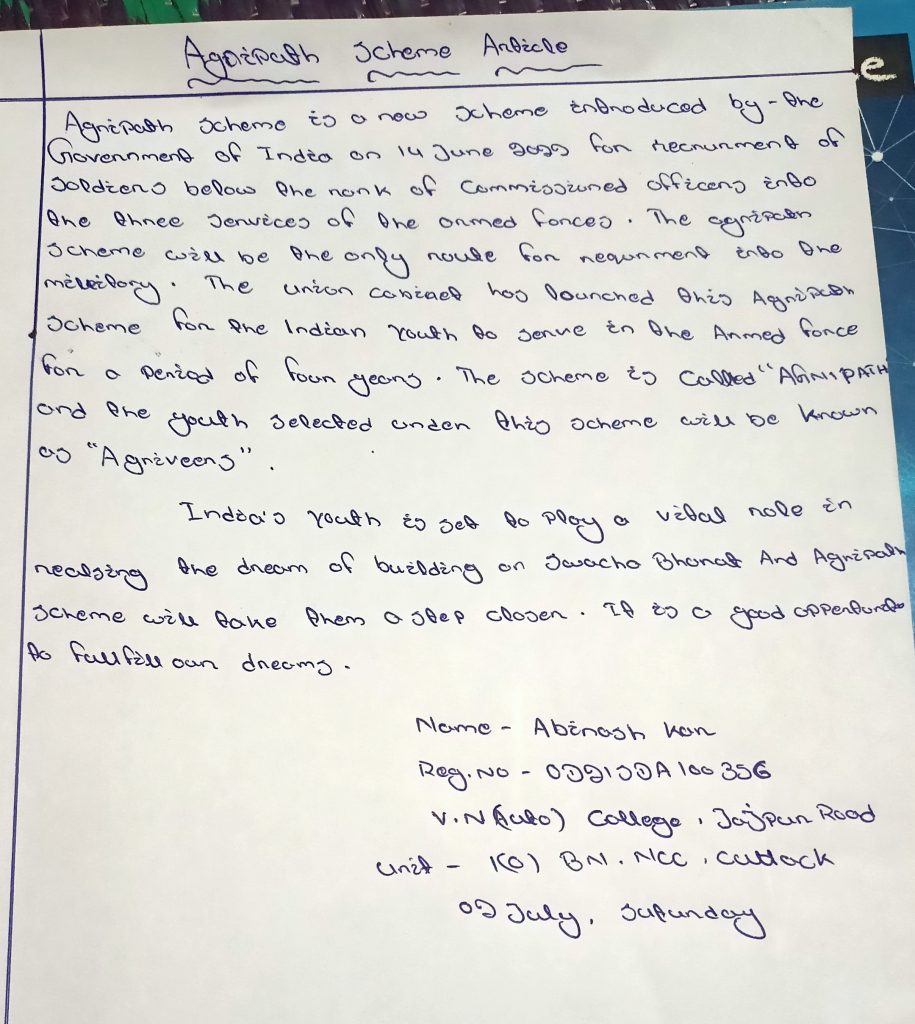 Agnipath Scheme Article
e
Agnipath Scheme is a new Scheme introduced by - the
Government of India on 14 June 2022 for recrunment of
Soldiers below the rank of commissioned officers into
the three services of the armed forces. The agnipath
Scheme will be the only route for requnment into the
military. The union cabinet has launched this Agnipath
Scheme for the Indian Youth to serve in the Armed force
for a period of four years. The scheme is called "AGNIPATH
and the youth selected under this scheme will be known
as "Agniveers".
India's Youth is set to play a vital role in
realsing the dream of building an Swacha Bharat And Agnipath
Scheme will take them a step closer. It is a good
to fullfill our dreams.
Name - Abinash Kar
Reg.No - OD21SDA100356
V.N (Auto) College, Jajpur Road
Unit - 1(O) BN. NCC, Cuttack
02 July, Saturday